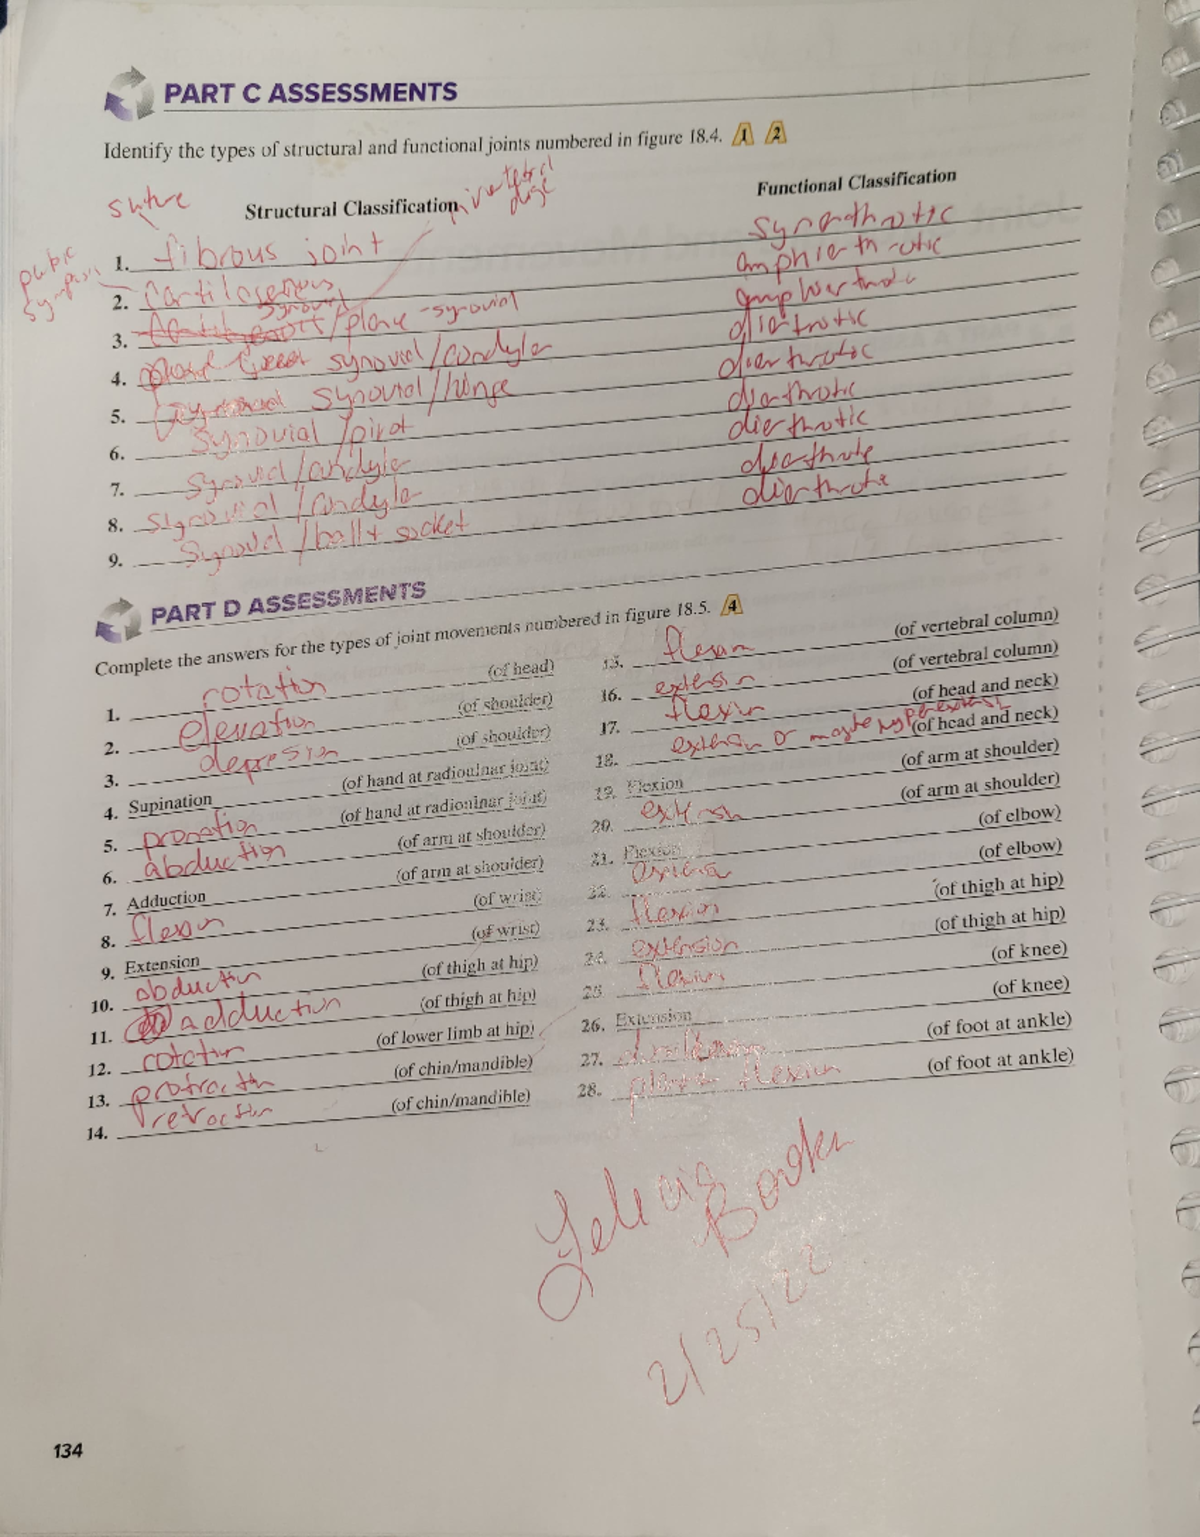 PART C ASSESSMENTS
Identify the types of structural and functional joints numbered in figure 18.4. 1 2
suture
intervertebral
Structural Classification
Functional Classification
pubic
1. fibrous joint synarthrotic
2. amphiarthrotic
3. /plane-synovial
4. synovial/condylar diartrotic
5. synovial/hinge diarthrotic
6. synovial/pivot diarthrotic
7. synovial/condylar diarthrotic
8. synovial/condylar
9. synovial/ball+ socket
PART D ASSESSMENTS
Complete the answers for the types of joint movements numbered in figure 18.5. 4
1. rotation (of head)
2. elevation (of shoulder)
3. depression (of shoulder)
4. Supination (of hand at radioulnar joint)
5. pronation (of hand at radioulnar joint)
6. abduction (of arm at shoulder)
7. Adduction (of arm at shoulder)
8. flexion (of wrist)
9. Extension (of wrist)
10. abduction (of thigh at hip)
11. adduction (of thigh at hip)
12. rotation (of lower limb at hip)
13. protraction (of chin/mandible)
14. retraction (of chin/mandible)
15. flexion (of vertebral column)
16. extension (of vertebral column)
17. flexion (of head and neck)
18. extension or maybe (of head and neck)
19. Flexion (of arm at shoulder)
20. (of arm at shoulder)
21. Flexion (of elbow)
22. (of elbow)
23. flexion (of thigh at hip)
24. extension (of thigh at hip)
25 flexion (of knee)
26. Extension (of knee)
27. (of foot at ankle)
28. plantar flexion (of foot at ankle)
2/25/22
134